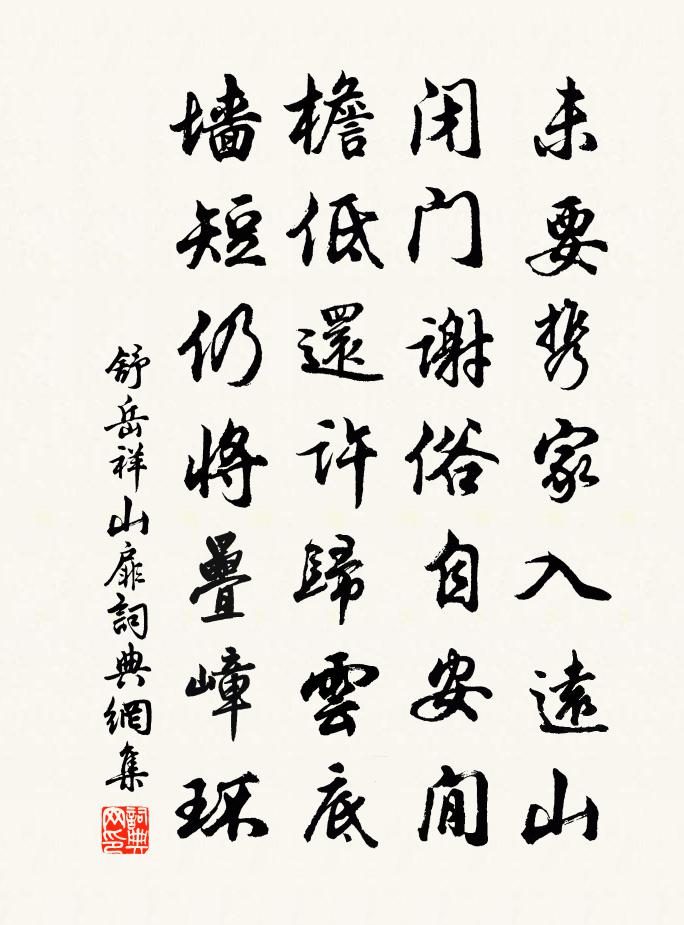 未要携家入遠山
闭门谢俗自安閒
檐低還许歸雲底
墙短仍将疊嶂环
舒岳祥山扉詞典網集
詞典网印